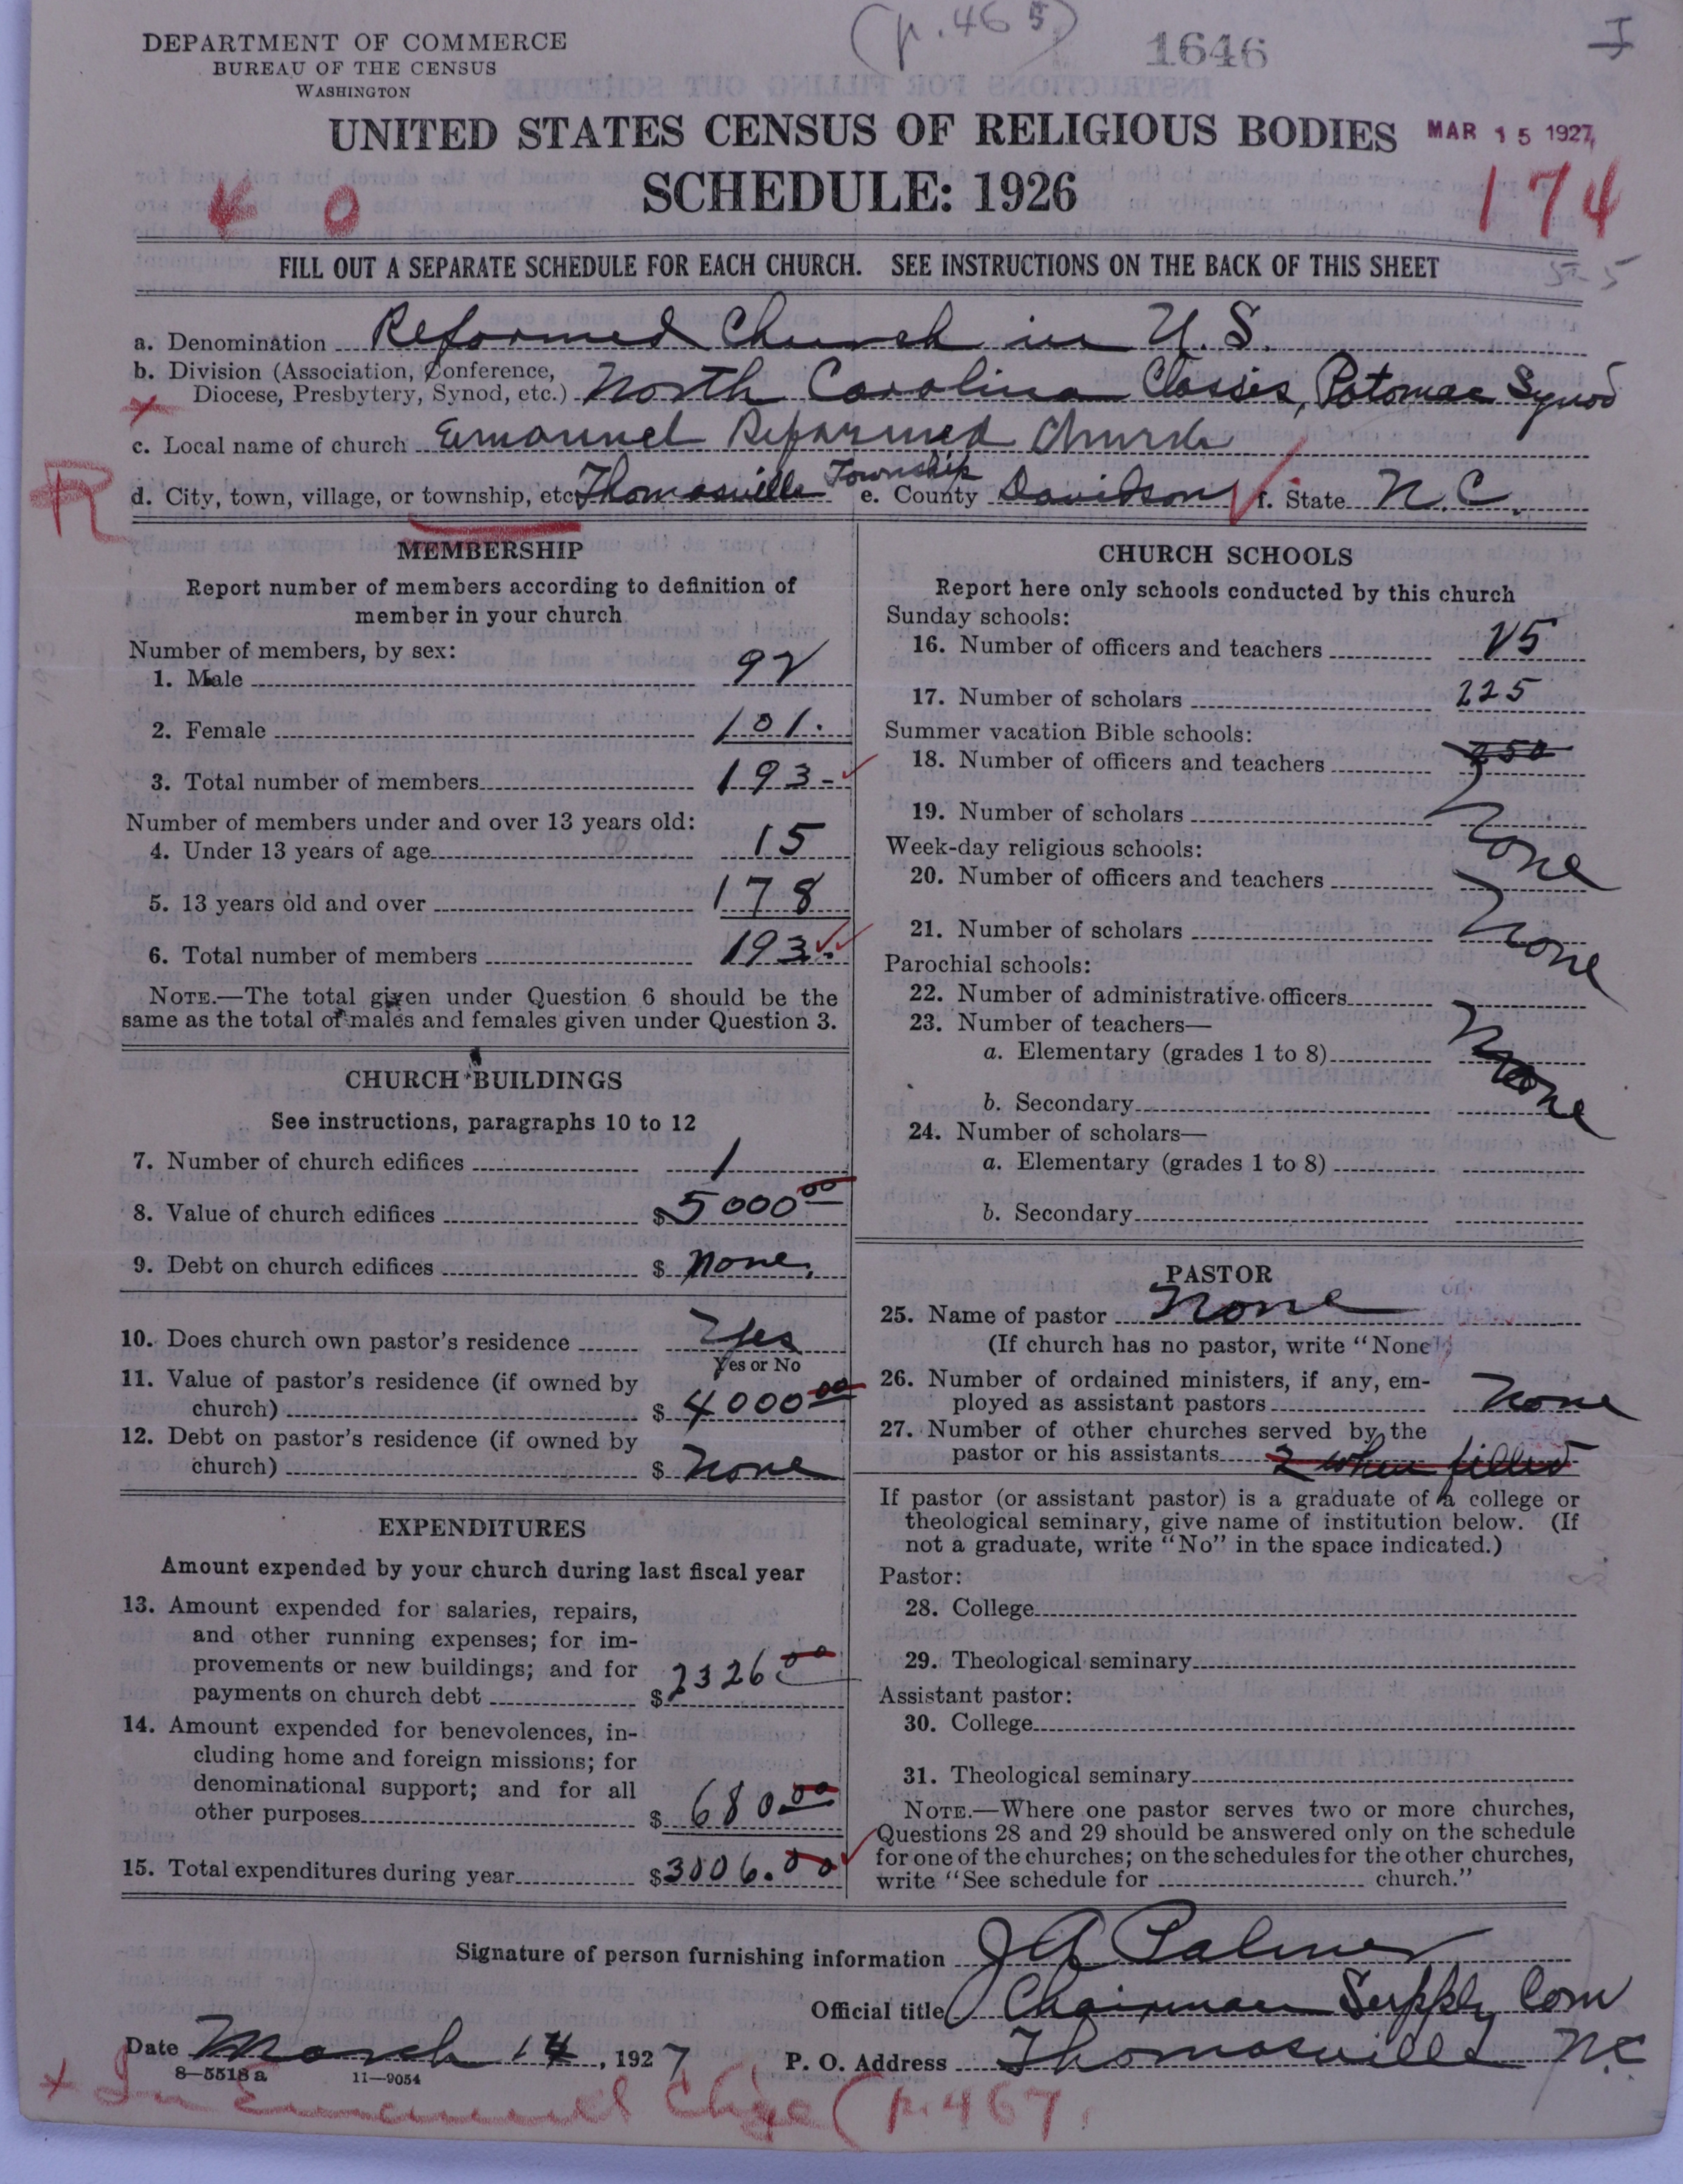 (p. 465)
1646
DEPARTMENT OF COMMERCE
BUREAU OF THE CENSUS
WASHINGTON
UNITED STATES CENSUS OF RELIGIOUS BODIES
MAR 15 1927
SCHEDULE: 1926
174
FILL OUT A SEPARATE SCHEDULE FOR EACH CHURCH. SEE INSTRUCTIONS ON THE BACK OF THIS SHEET
5-5
a. Denomination Reformed Church in U.S.
b. Division (Association, Conference,
Diocese, Presbytery, Synod, etc.) North Carolina Classis, Potomac Synod
c. Local name of church Emanuel Reformed Church
R
d. City, town, village, or township, etc. Thomasville Township e. County Davidson f. State N.C.
MEMBERSHIP
Report number of members according to definition of
member in your church
Number of members, by sex:
1. Male 92
2. Female 101.
3. Total number of members 193-
Number of members under and over 13 years old:
4. Under 13 years of age 15
5. 13 years old and over 178
6. Total number of members 193
NOTE.—The total given under Question 6 should be the
same as the total of males and females given under Question 3.
CHURCH BUILDINGS
See instructions, paragraphs 10 to 12
7. Number of church edifices 1
8. Value of church edifices $5000 00
9. Debt on church edifices $ None.
10. Does church own pastor's residence Yes
Yes or No
11. Value of pastor's residence (if owned by
church) $ 4000 00
12. Debt on pastor's residence (if owned by
church) $ None
EXPENDITURES
Amount expended by your church during last fiscal year
13. Amount expended for salaries, repairs,
and other running expenses; for im-
provements or new buildings; and for
payments on church debt $2326 00
14. Amount expended for benevolences, in-
cluding home and foreign missions; for
denominational support; and for all
other purposes $ 680 00
15. Total expenditures during year $3006.00
CHURCH SCHOOLS
Report here only schools conducted by this church
Sunday schools:
16. Number of officers and teachers 25
17. Number of scholars 225
Summer vacation Bible schools:
18. Number of officers and teachers 250
19. Number of scholars None
Week-day religious schools:
20. Number of officers and teachers
21. Number of scholars None
Parochial schools:
22. Number of administrative officers
23. Number of teachers—
a. Elementary (grades 1 to 8) None
b. Secondary
24. Number of scholars—
a. Elementary (grades 1 to 8)
b. Secondary
PASTOR
25. Name of pastor None
(If church has no pastor, write "None")
26. Number of ordained ministers, if any, em-
ployed as assistant pastors None
27. Number of other churches served by the
pastor or his assistants 2 when filled
If pastor (or assistant pastor) is a graduate of a college or
theological seminary, give name of institution below. (If
not a graduate, write "No" in the space indicated.)
Pastor:
28. College
29. Theological seminary
Assistant pastor:
30. College
31. Theological seminary
NOTE.—Where one pastor serves two or more churches,
Questions 28 and 29 should be answered only on the schedule
for one of the churches; on the schedules for the other churches,
write "See schedule for church."
Signature of person furnishing information J A Palmer
Official title Chairman Supply Com
Date March 14, 1927
P. O. Address Thomasville N.C.
8—5518a 11—9054
x In Emanuel Chge (p. 467.